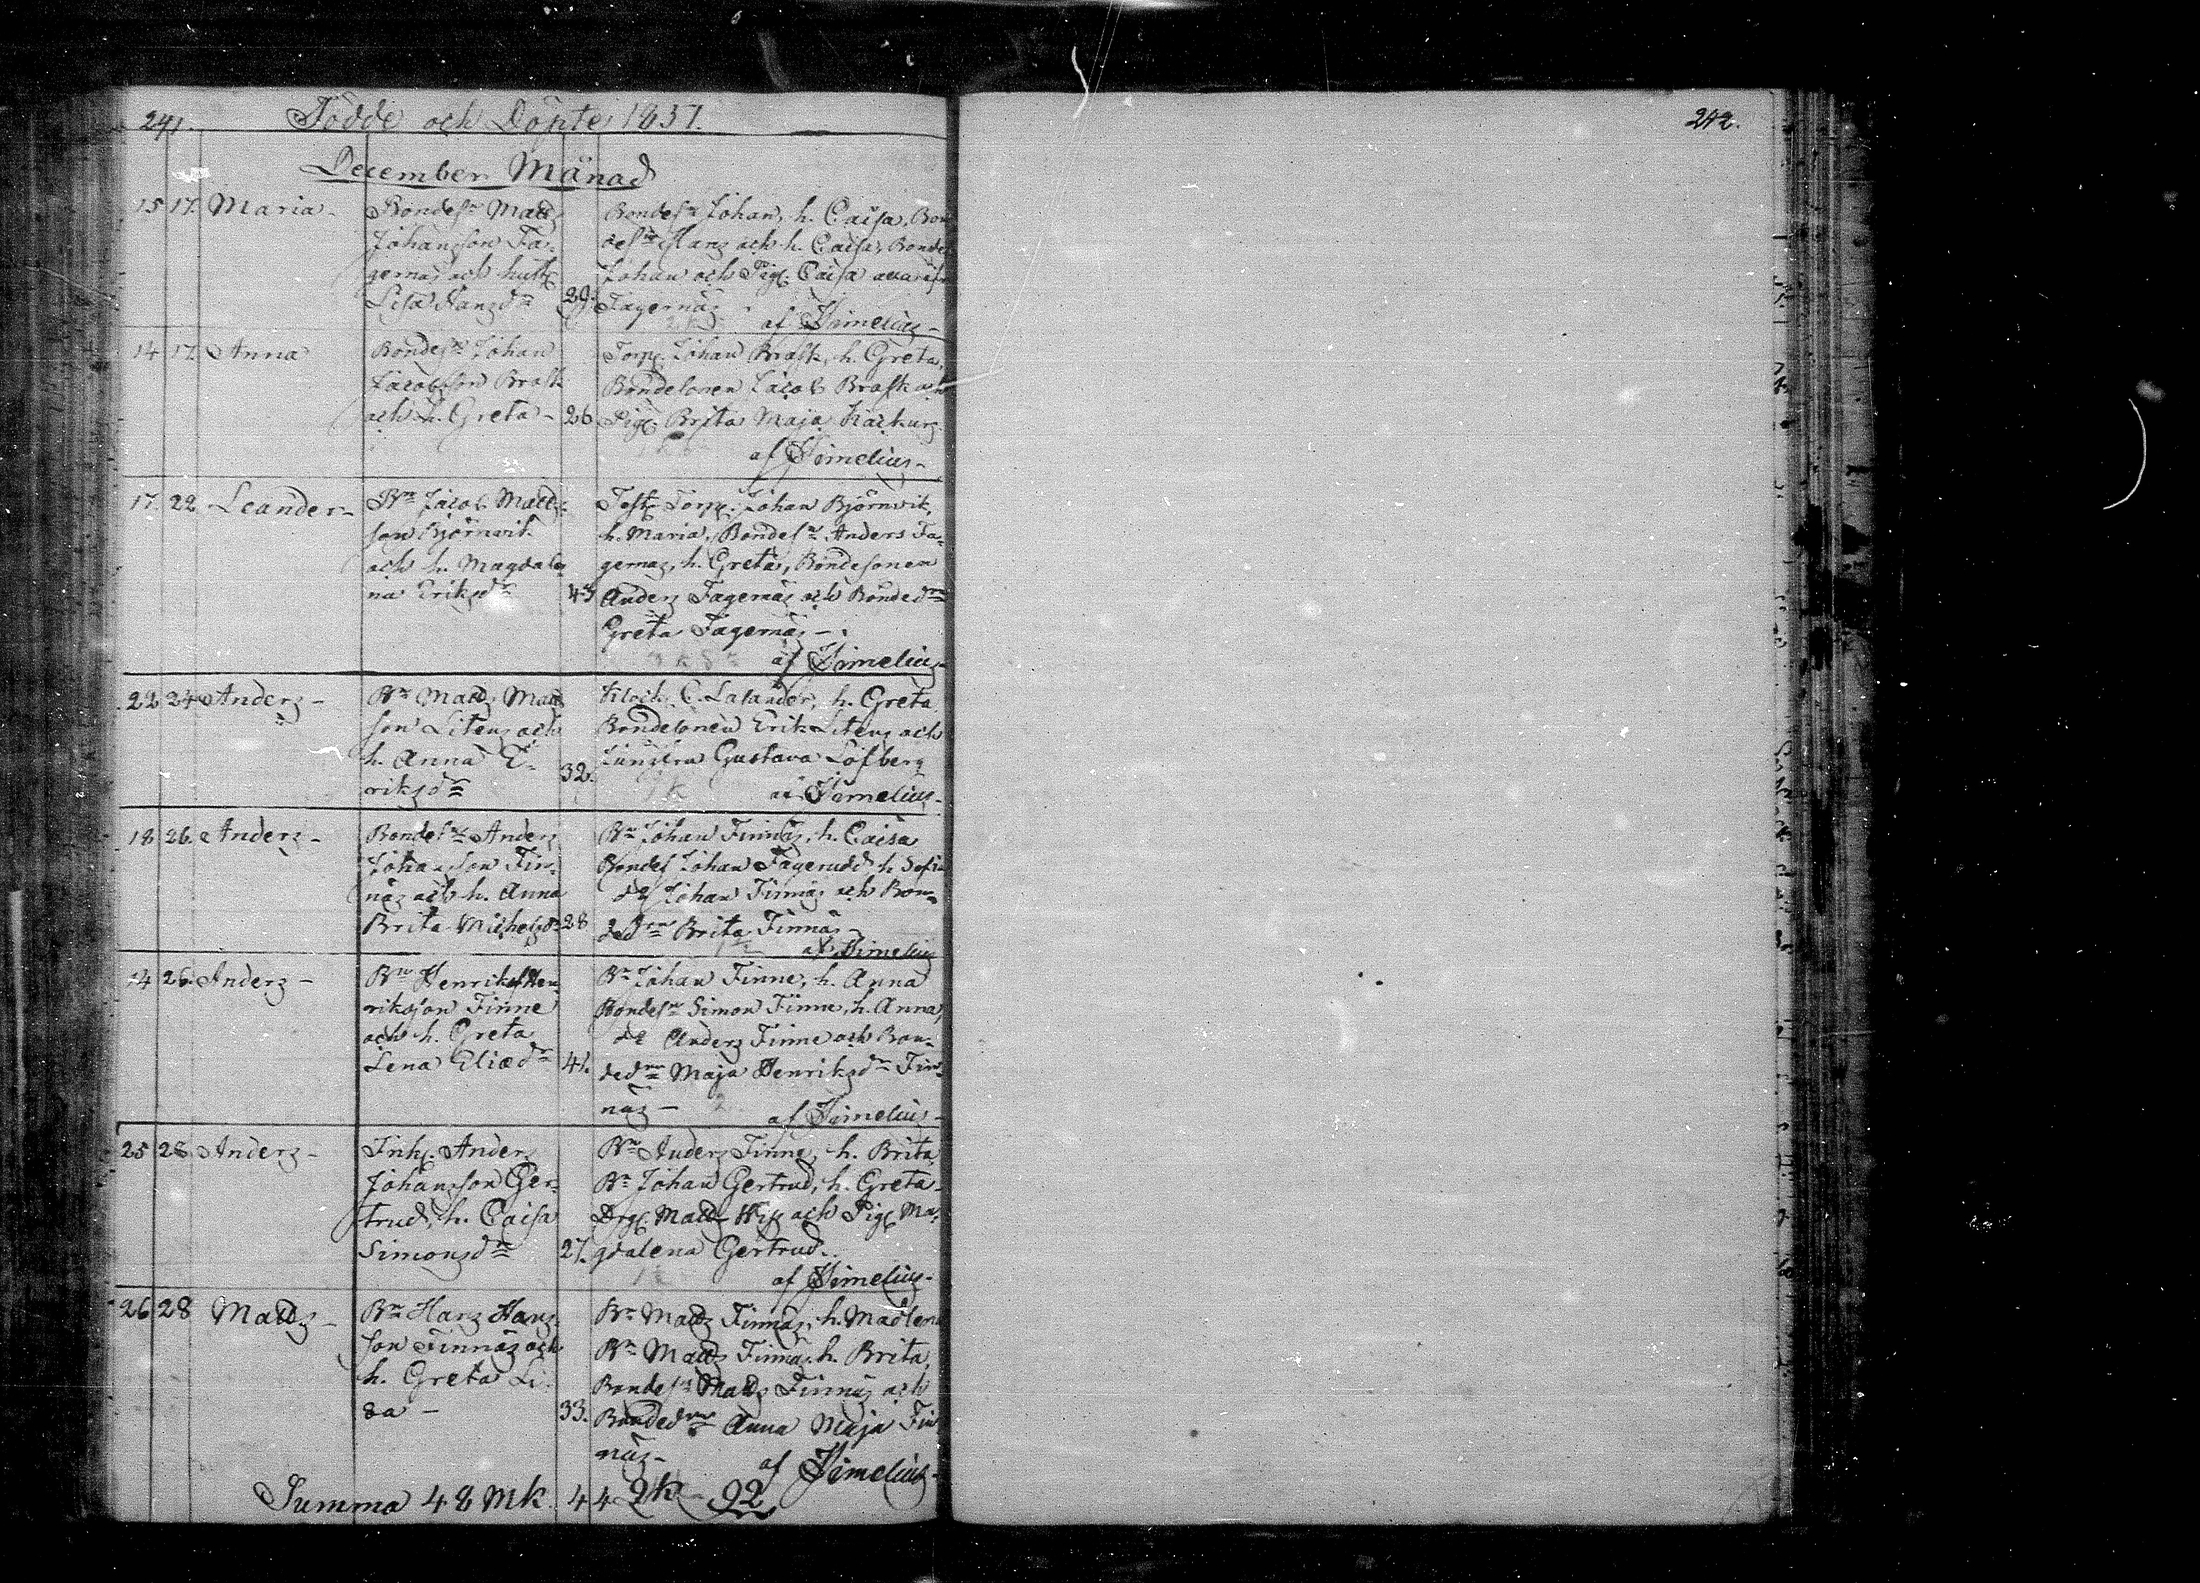 241.
Födde och Döpte 1837.
242.
December Månad
15 17. Maria -
Bondes:n Matts
Johansson Fa-
gernäs och hust:
Lisa Hansd:r 29.
Bondes:n Johan, h. Caisa, Bon
des:n Hans och h. Caisa, Bondes
Johan och Pig. Caisa
Fagernäs
af Simelius -
14 17. Anna
Bondes:n Johan
Jacobsson Brask
och h. Greta - 26
Torp. Johan Brask, h. Greta,
Bondesonen Jacob Brask och
Pig. Brita Maja
af Simelius -
17. 22. Leander -
B:n Jacob Matts-
son Björnvik
och h. Magdale
na Eriksd:r 43
Test. Torp. Johan Björnvik,
h. Maria, Bondes:n Anders Fa-
gernäs, h. Greta, Bondesonen
Anders Fagernäs och Bonded:rn
Greta Fagernäs -
af Simelius -
22 24 Anders -
B:n Matts Matts
son Litens och
h. Anna E-
riksd:r 32.
Klock. C. Lalander, h. Greta
Bondesonen Erik Litens och
Jungfru Gustava Löfberg
af Simelius -
18 26. Anders -
Bondes:n Anders
Johansson Fin-
näs och h. Anna
Brita Michelsd:r 28
B:n Johan Finnäs, h. Caisa
Bondes Johan Fagerudd h. Sofia
d:o Johan Finnäs och Bon-
ded:rn Brita Finnäs -
af Simelius
14 26. Anders -
B:n Henrik Hen
riksson Finne
och h. Greta
Lena Eliæd:r 41.
B:n Johan Finne, h. Anna
Bondes:n Simon Finne, h. Anna,
d:o Anders Finne och Bon-
ded:rn Maja Henriksd:r Fin-
näs -
af Simelius -
25 28 Anders -
Inh. Anders
Johansson Ger-
trud, h. Caisa
Simonsd:r 27.
B:n Anders Finne, h. Brita,
B:n Johan Gertrud, h. Greta -
Drg. Matts och Pig Ma-
gdalena Gertrud.
af Simelius -
26 28 Matts -
B:n Hans Hans-
son Finnäs och
h. Greta Li-
sa - 33.
B:n Matts Finnäs, h. Madlena
B:n Matts Finnäs h. Brita,
Bondes:n Matts Finnäs och
Bonded:rn Anna Maja Fin
näs -
af Simelius -
Summa 48 Mk 44 Qk - 92